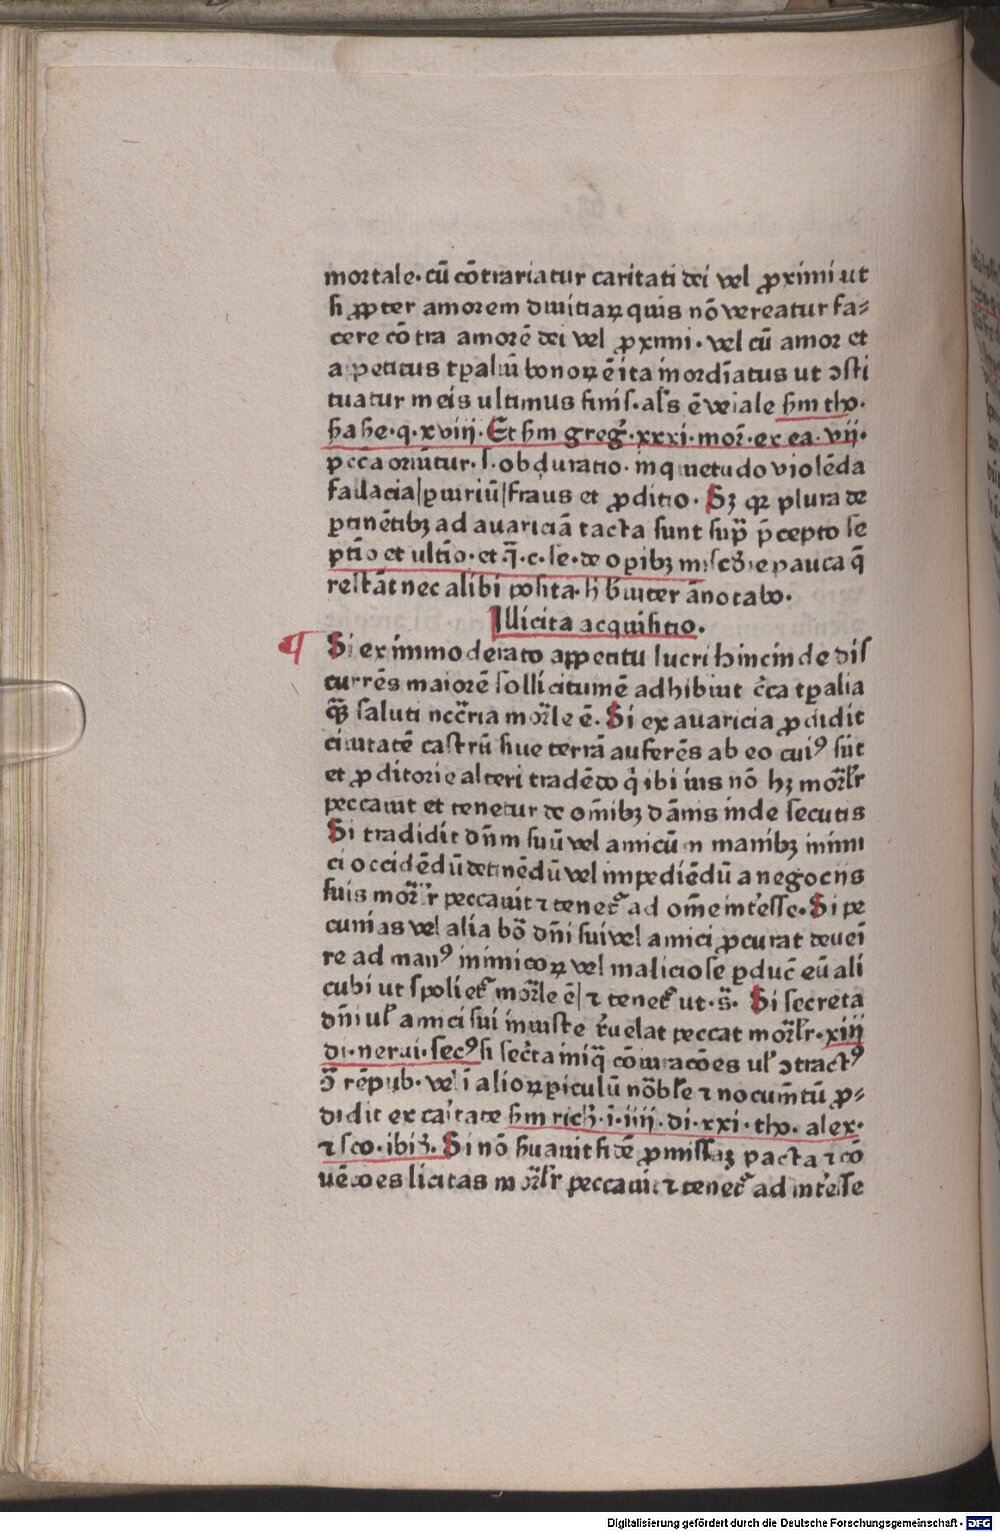 mortale· cū cōtrariatur caritati dei vel ꝓximi ut
si ꝓpter amorem diuitiaꝝ quis nō vereatur fa-
cere cōtra amorē dei vel ꝓximi· vel cū amor et
apetitus tꝑaliū bonoꝝ ē ita inordīatus ut ↄsti
tuatur in eis ultimus finis· al's ē veniale ẜm tho·
ẜa ẜe· q· xviij· Et ẜm greg᷒· xxxi· mor̄· ex ea· vij·
pccā oriūtur· s· obduratio· inquietudo violēda
fallacia|ꝑiuriū|fraus et ꝓditio· Sꝫ qr plura de
ꝑtinētibꝫ ad auariciā tacta sunt sup̄ p̄cepto se
ptīo et ultīo· et q̄· c· se· de oꝑibꝫ mīscd'ie pauca q̄
restāt nec alibi posita· h̄ b'uiter ānotabo·
Illicita acquisitio·
¶ Si ex immoderato appetitu lucri hincinde dis
currēs maiorē sollicitudinē adhibuit c̄ca tꝑalia
q̄ꝫ saluti nccr̄ia mor̄le ē· Si ex auaricia ꝓdidit
ciuitatē castrū siue terrā auferēs ab eo cui⁹ sūt
et ꝓditorie alteri tradēdo q̄ ibi ius nō hꝫ mor̄lr̄
peccauit et tenetur de om̄ibꝫ dāmis inde secutis
Si tradidit dn̄m suū vel amicū in manibꝫ inimi
ci occidēdū detinēdū vel impediēdū a negociis
suis mor̄lr̄ peccauit ⁊ tenet᷒ ad om̄e intēsse· Si pe
cunias vel alia bō dn̄i sui vel amici ꝓcurat deuei
re ad man⁹ inimicoꝝ vel maliciose ꝑduc̄ eū ali
cubi ut spoliet᷒ mor̄le ē| ⁊ tenet᷒ ut· s̄· Si secreta
dn̄i ul' amici sui iniuste r̄uelat peccat mor̄lr̄· xiij
di· nerui· Sec⁹ si sec̄ta iniq̄ cōiuracōes ul' ↄtract⁹
ↄ̄ rēpub· vel ī alioꝝ ꝑiculū nōbl'e ⁊ nocumētū ꝓ-
didit ex caritate ẜm rich᷒· ī· iiij· di· xxi· tho· alex·
⁊ sco· ibid᷒· Si nō ẜuauit fidē ꝓmissaꝫ pacta ⁊ cō
uēcōes licitas mor̄lr̄ peccauit ⁊ tenet᷒ ad intēsse
Digitalisierung gefördert durch die Deutsche Forschungsgemeinschaft - DFG